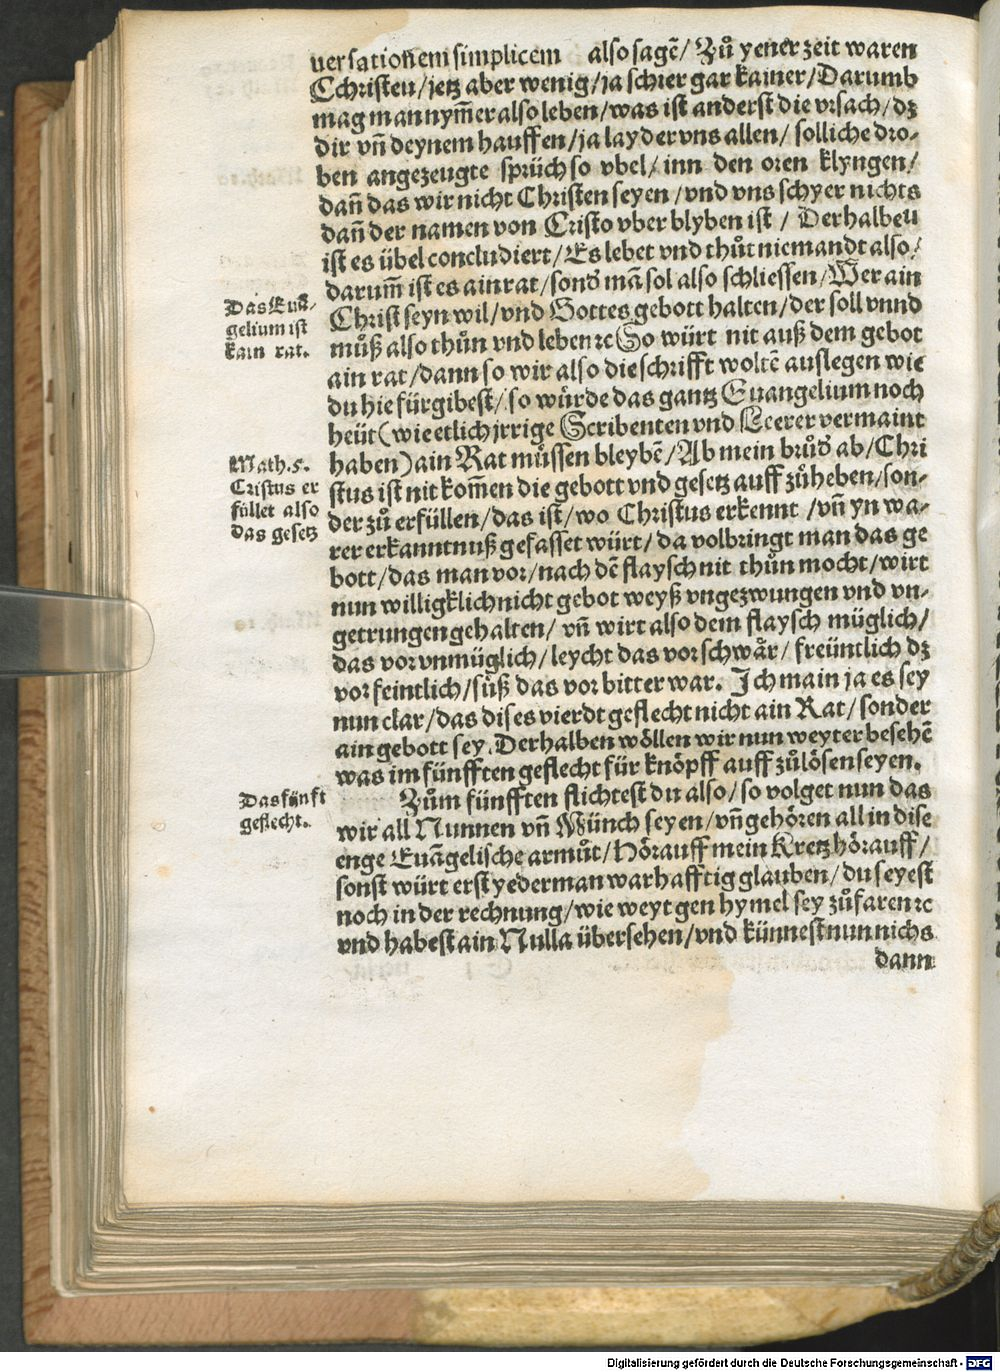 uersationem simplicem also sagẽ/ Zů yener zeit waren
Cchristen/jetz aber wenig/ja schier gar kainer/Darumb
mag man nym̃er also leben/was ist anderst die vrsach/dz
dir vñ deynem hauffen/ja layder vns allen/ solliche dro-
ben angezeugte sprüch so vbel/ inn den oren klyngen/
dañ das wir nicht Christen seyen/vnd vns schyer nichts
dañ der namen von Cristo vber blyben ist/ Derhalben
ist es übel concludiert/Es lebet vnd thůt niemandt also/
darum̃ ist es ain rat/sonď mã sol also schliessen/Wer ain
Christ seyn wil/vnd Gottes gebott halten/der soll vnnd
můß also thůn vnd leben ꝛc So würt nit auß dem gebot
ain rat/dann so wir also die schrifft woltẽ auslegen wie
du hie fürgibest/ so würde das gantz Euangelium noch
heüt (wie etlich jrrige Scribenten vnd Leerer vermaint
haben) ain Rat müssen bleybẽ/Ab mein brůď ab/Chri
stus ist nit kom̃en die gebott vnd gesetz auff zůheben/son-
der zů erfüllen/das ist/wo Christus erkennt /vñ yn wa-
rer erkanntnuß gefasset würt/da volbringt man das ge
bott/das man vor/nach dẽ flaysch nit thůn mocht/wirt
nun willigklich nicht gebot weyß vngezwungen vnd vn-
getrungen gehalten/ vñ wirt also dem flaysch müglich/
das vor vnmüglich/leycht das vor schwär/ freüntlich dz
vor feintlich/süß das vor bitter war. Ich main ja es sey
nun clar/das dises vierdt geflecht nicht ain Rat/sonder
ain gebott sey. Derhalben wöllen wir nun weyter besehẽ
was im fünfften geflecht für knöpff auff zůlösen seyen.
Zům fünfften flichtest du also/so volget nun das
wir all Nunnen vñ Münch seyen/vñ gehören all in dise
enge Euãgelische armůt/Hör auff mein Kretz hör auff/
sonst würt erst yederman warhafftig glauben/du seyest
noch in der rechnung/wie weyt gen hymel sey zůfaren ꝛc
vnd habest ain Nulla übersehen/vnd künnest nun nichs
dann
Das Euã-
gelium ist
kain rat.
Math.5.
Cristus er
füllet also
das gesetz
Das fünft
geflecht.
Digitalisierung gefördert durch die Deutsche Forschungsgemeinschaft - DFG